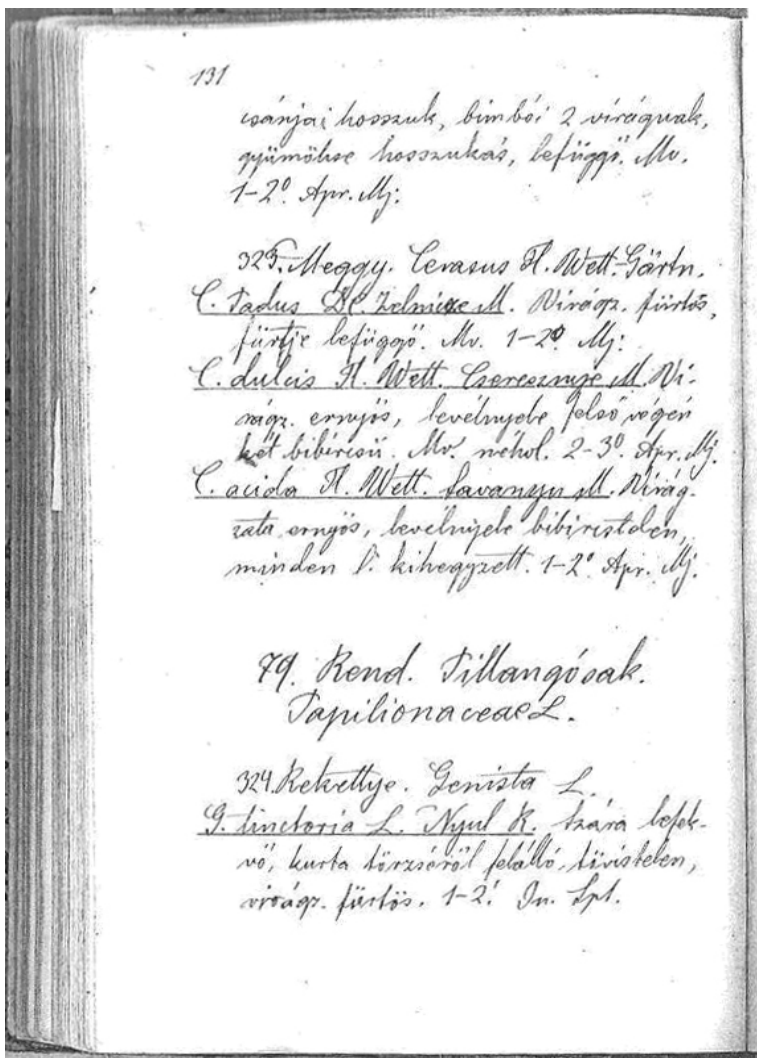 131
csánjai hosszuk, bimbói 2 virágnak,
gyümölcse hosszukás, lefüggő. Mv.
1-2⁰. Apr. Mj.
323. Meggy. Cerasus Fl. Wett.-Gärtn.
C. Padus DC. Zelnicze M. Virágz. fürtös,
fürtje lefüggő. Mv. 1-2⁰. Mj.
C. dulcis Fl. Wett. Cseresznye M. Vi-
rágz. ernyős, levélnyele felső végén
két bibircsű. Mv. néhol. 2-3⁰. Apr. Mj.
C. acida Fl. Wett. Savanyu M. Virág-
zata ernyős, levélnyele bibircstelen,
minden l. kihegyzett. 1-2⁰. Apr. Mj.
79. Rend. Pillangósak.
Papilionaceae L.
324. Rekettye. Genista L.
G. tinctoria L. Nyul R. Szára lefek-
vő, kurta törzséről felálló, tövistelen,
virágz. fürtös. 1-2'. Jn. Spt.